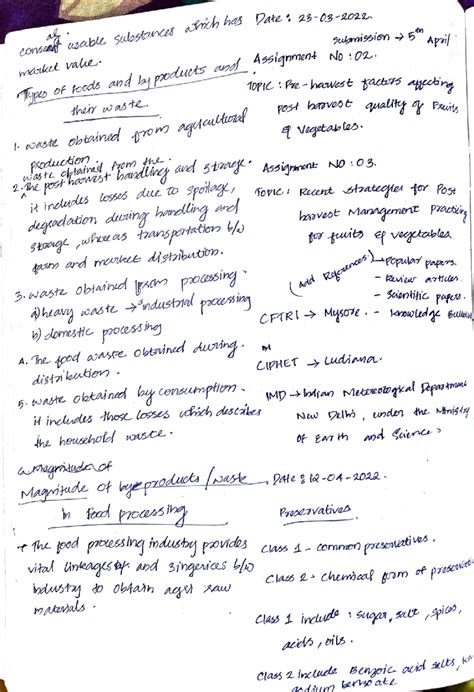 of
consent usable substances which has
market value.
Types of foods and by products and
their waste.
1. waste obtained from agricultural
production.
waste obtained from the
2. The post harvest handling and storage.
it includes losses due to spoilage,
degradation during handling and
storage, whereas transportation b/w
farm and market distribution.
3. waste obtained from processing.
a) heavy waste → industrial processing
b) domestic processing
4. The food waste obtained during
distribution.
5. waste obtained by consumption.
it includes those losses which describes
the household waste.
Magnitude of
Magnitude of by products / waste
in Food processing
→ The food processing industry provides
vital linkages and b/w
industry to obtain agri raw
materials.
Date: 23-03-2022.
Submission → 5th April
Assignment No: 02.
TOPIC: Pre-harvest factors affecting
post harvest quality of Fruits
& Vegetables.
Assignment NO: 03.
TOPIC: Recent strategies for Post
harvest Management Practices
for fruits & vegetables
(Add References) → Popular papers.
- Review articles.
- Scientific papers.
CFTRI → Mysore. - Knowledge
CIPHET → Ludiana.
IMD → Indian Meteorological Department
New Delhi, under the Ministry
of Earth and Science
Date: 12-04-2022.
Preservatives
Class 1 - common preservatives.
Class 2 - Chemical form of
Class 1 include: sugar, salt, spices,
acids, oils.
Class 2 include Benzoic acid salts,
sodium benzoate